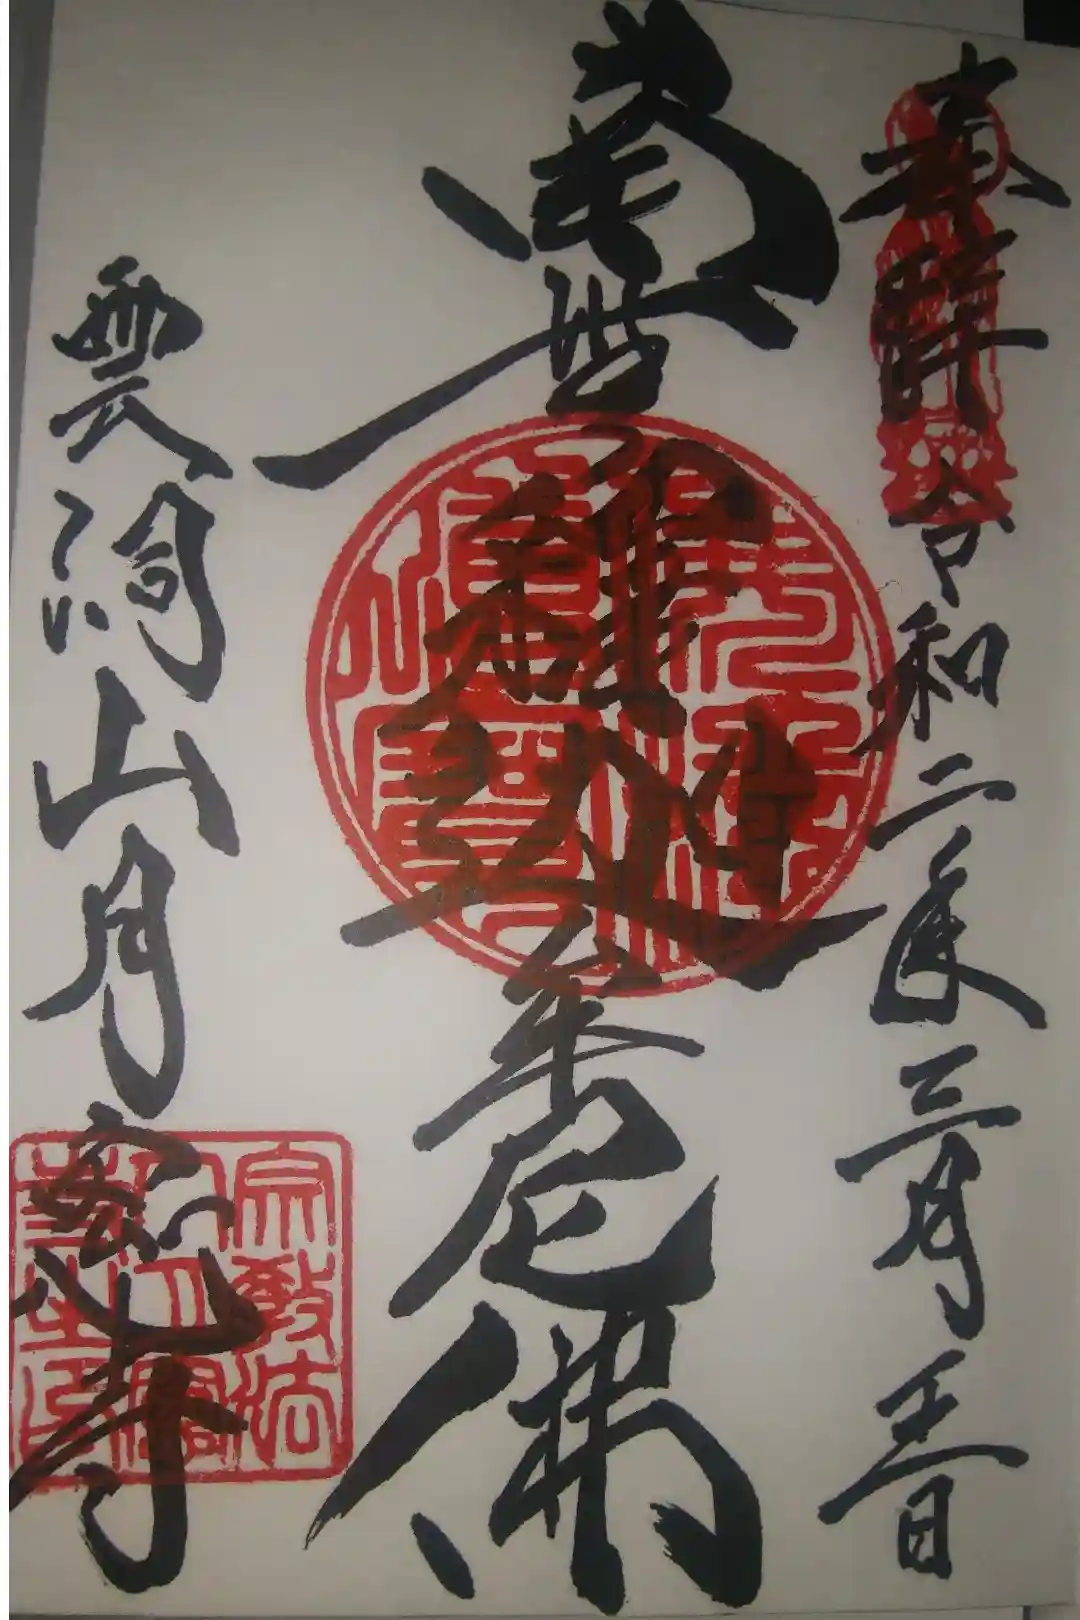 奉拝 令和二年三月五日
南無釋迦牟尼佛
雲洞山月窓寺
宗教法
人月窓
寺之印